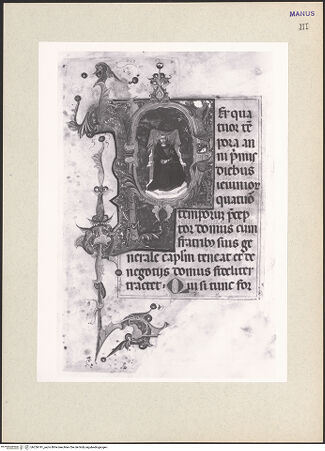 MANUS
III
Er qua
tuor te
pora an
ni pmis
diebus
ieiunior
quatuo
temporum pcep
tor domus cum
fratribus suis ge
nerale caplm teneat et de
negotijs domus fideliter
tractet. Qui si tunc for